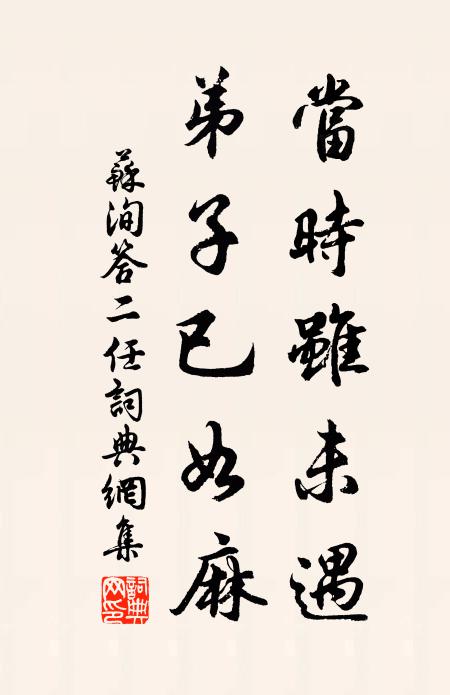 當時雖未遇
弟子已如麻
蘇洵答二任詞典網集
詞典网印